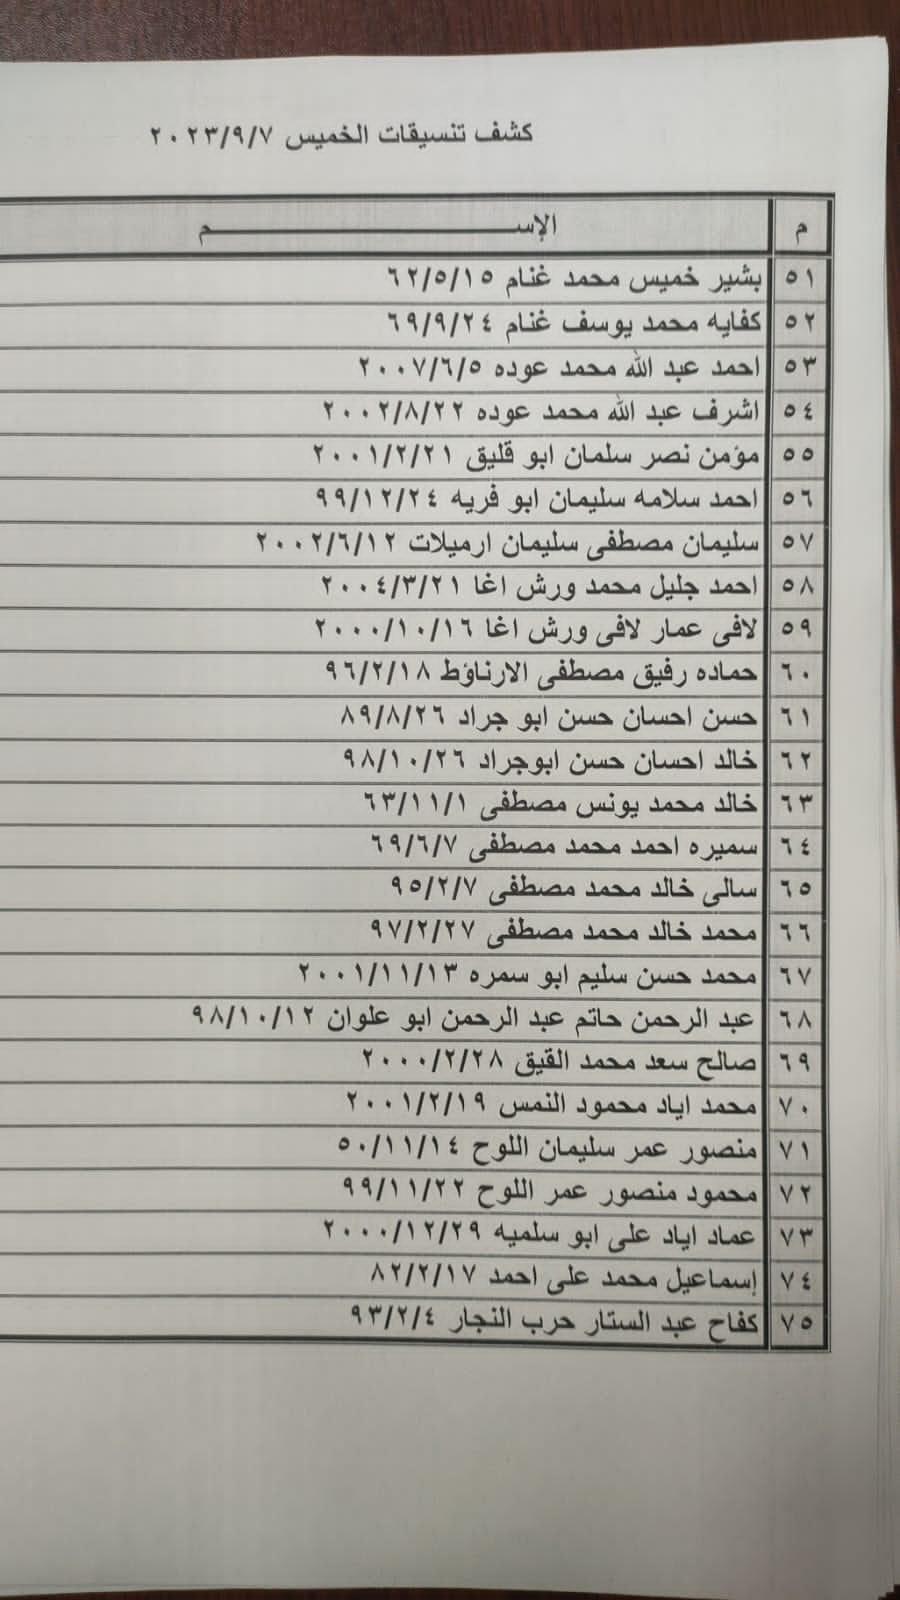 كشف تنسيقات الخميس ٢٠٢٣/٩/٧
م الإســـــــــم
٥١ بشير خميس محمد غنام ٦٢/٥/١٥
٥٢ كفايه محمد يوسف غنام ٦٩/٩/٢٤
٥٣ احمد عبد الله محمد عوده ٢٠٠٧/٦/٥
٥٤ اشرف عبد الله محمد عوده ٢٠٠٢/٨/٢٢
٥٥ مؤمن نصر سلمان ابو قليق ٢٠٠١/٢/٢١
٥٦ احمد سلامه سليمان ابو فريه ٩٩/١٢/٢٤
٥٧ سليمان مصطفى سليمان ارميلات ٢٠٠٢/٦/١٢
٥٨ احمد جليل محمد ورش اغا ٢٠٠٤/٣/٢١
٥٩ لافى عمار لافى ورش اغا ٢٠٠٠/١٠/١٦
٦٠ حماده رفيق مصطفى الارناؤط ٩٦/٢/١٨
٦١ حسن احسان حسن ابو جراد ٨٩/٨/٢٦
٦٢ خالد احسان حسن ابوجراد ٩٨/١٠/٢٦
٦٣ خالد محمد يونس مصطفى ٦٣/١١/١
٦٤ سميره احمد محمد مصطفى ٦٩/٦/٧
٦٥ سالى خالد محمد مصطفى ٩٥/٢/٧
٦٦ محمد خالد محمد مصطفى ٩٧/٢/٢٧
٦٧ محمد حسن سليم ابو سمره ٢٠٠١/١١/١٣
٦٨ عبد الرحمن حاتم عبد الرحمن ابو علوان ٩٨/١٠/١٢
٦٩ صالح سعد محمد القيق ٢٠٠٠/٢/٢٨
٧٠ محمد اياد محمود النمس ٢٠٠١/٢/١٩
٧١ منصور عمر سليمان اللوح ٥٠/١١/١٤
٧٢ محمود منصور عمر اللوح ٩٩/١١/٢٢
٧٣ عماد اياد على ابو سلميه ٢٠٠٠/١٢/٢٩
٧٤ إسماعيل محمد على احمد ٨٢/٢/١٧
٧٥ كفاح عبد الستار حرب النجار ٩٣/٢/٤